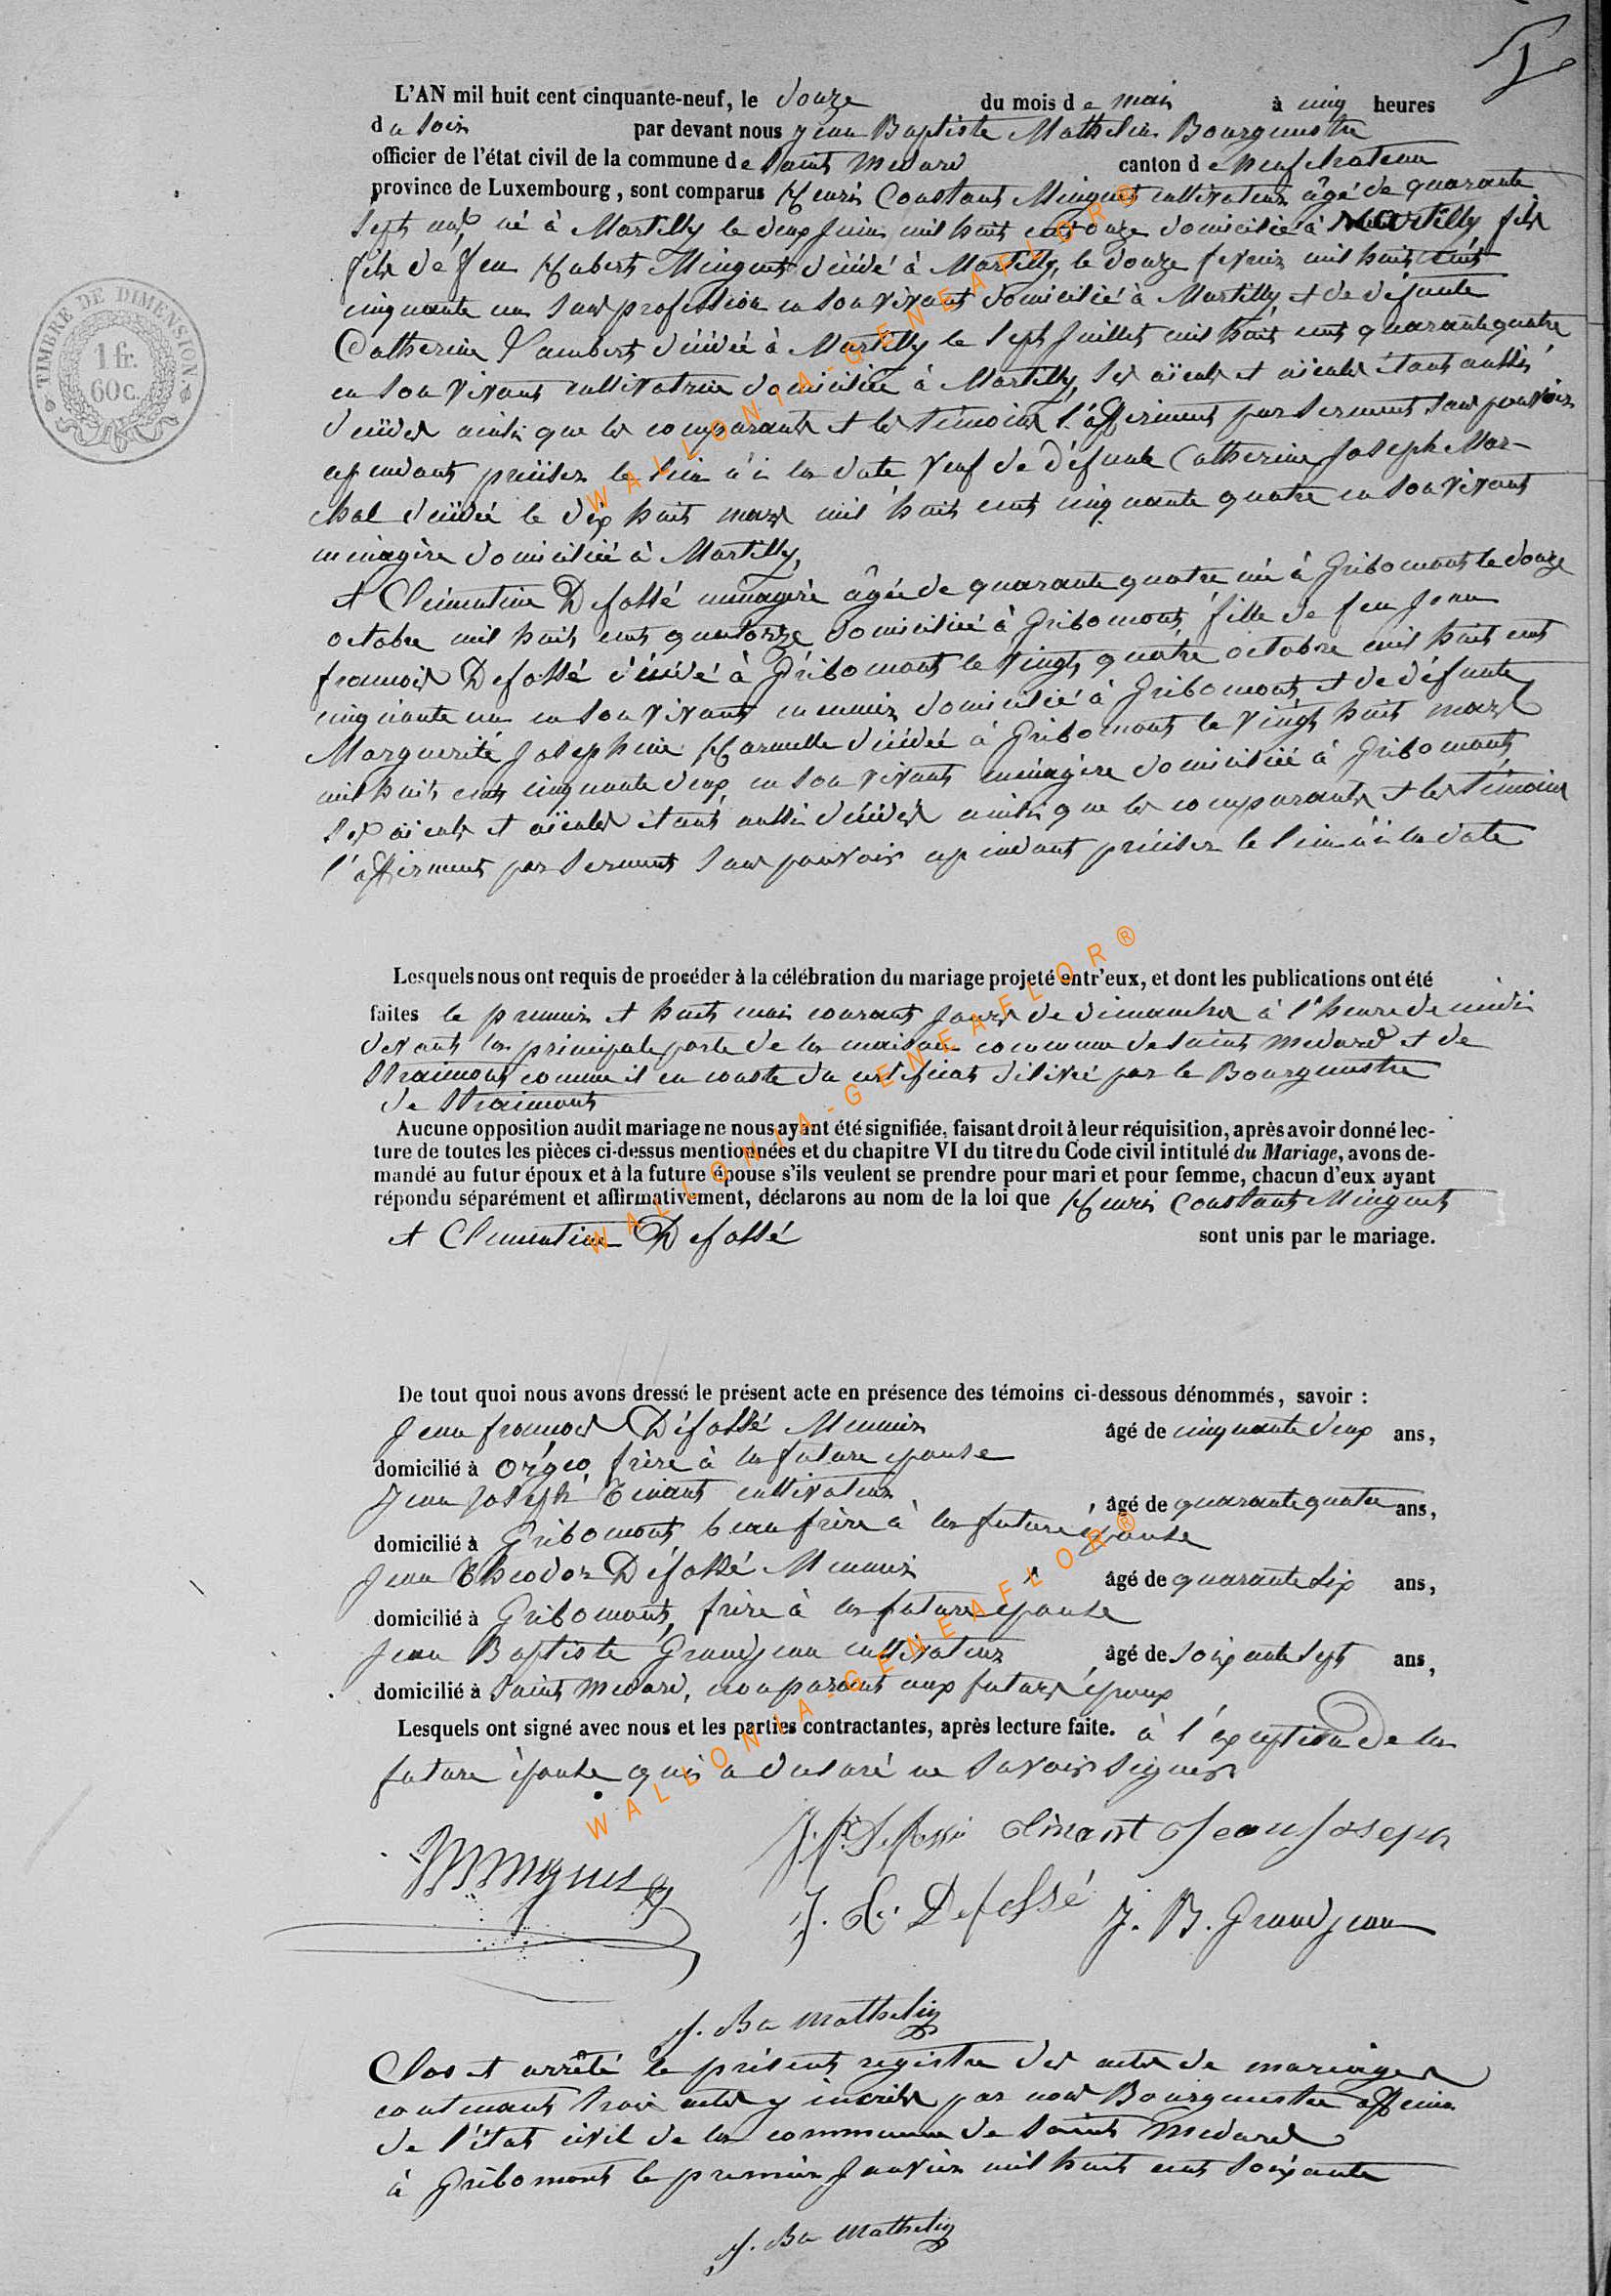 L'AN mil huit cent cinquante-neuf, le douze du mois de mai à cinq heures
du soir par devant nous Jean Baptiste Mathelin Bourgmestre
officier de l'état civil de la commune de Saint Medard canton de Neufchateau
province de Luxembourg, sont comparus Henri Constant Minguet cultivateur âgé de quarante
sept ans né à Martilly le deux Juin mil huit cent onze domicilié à Martilly fils
fils de feu Hubert Minguet décédé à Martilly, le douze fevrier mil huit cent
cinquante un sans profession en son vivant domicilié à Martilly et de défunte
Catherine Lambert décédée à Martilly le sept Juillet mil huit cent quarante quatre
en son vivant cultivatrice domiciliée à Martilly, ses aïeuls et aïeules étant aussi
décédés ainsi que les comparants et les témoins l'affirment par serment sans pouvoir
cependant préciser le lieu ni la date veuf de défunte Catherine Joseph Mar-
chal décédée le dix huit mars mil huit cent cinquante quatre en son vivant
ménagère domiciliée à Martilly,
et Clémentine Defossé ménagère âgée de quarante quatre née à Gribomont le douze
octobre mil huit cent quatorze domiciliée à Gribomont, fille de feu Jean
francois Defossé décédé à Gribomont le vingt quatre octobre mil huit cent
cinquante un en son vivant meunier domicilié à Gribomont et de défunte
Marguerite Josephine décédée à Gribomont le vingt huit mars
mil huit cent cinquante deux en son vivant ménagère domiciliée à Gribomont
ses aïeuls et aïeules étant aussi décédés ainsi que les comparants et les témoins
l'affirment par serment sans pouvoir cependant préciser le lieu ni la date
Lesquels nous ont requis de procéder à la célébration du mariage projeté entr'eux, et dont les publications ont été
faites le premier et huit mai courant jours de dimanches à l'heure de midi
devant la principale porte de la maison commune de Saint Medard et de
Straimont comme il en conste du certificat délivré par le Bourgmestre
de Straimont
Aucune opposition audit mariage ne nous ayant été signifiée, faisant droit à leur réquisition, après avoir donné lec-
ture de toutes les pièces ci-dessus mentionnées et du chapitre VI du titre du Code civil intitulé du Mariage, avons de-
mandé au futur époux et à la future épouse s'ils veulent se prendre pour mari et pour femme, chacun d'eux ayant
répondu séparément et affirmativement, déclarons au nom de la loi que Henri Constant Minguet
et Clementine Defossé sont unis par le mariage.
De tout quoi nous avons dressé le présent acte en présence des témoins ci-dessous dénommés, savoir :
Jean francois Défossé Meunier âgé de cinquante deux ans,
domicilié à Orgeo frère à la future épouse
Jean Joseph Tinant cultivateur âgé de quarante quatre ans,
domicilié à Gribomont, beau frère à la future épouse
Jean Théodor Défossé Meunier âgé de quarante six ans,
domicilié à Gribomont, frère à la future épouse
Jean Baptiste Grandjean cultivateur âgé de soixante sept ans,
domicilié à Saint Medard, non parent aux futurs époux
Lesquels ont signé avec nous et les parties contractantes, après lecture faite. à l'exception de la
future épouse qui a déclaré ne savoir signer
Minguet J. f. Defossé Tinant Jean Joseph
J. T. Defossé J. B. Grandjean
J. Bte Mathelin
Clos et arrêté le présent registre des actes de mariages
contenant trois actes y inscrits par nous Bourgmestre officier
de l'état civil de la commune de Saint Medard
à Gribomont le premier Janvier mil huit cent soixante
J. Bte Mathelin
TIMBRE DE DIMENSION
1 fr.
60 c.
WALLONIA-GENEAFLOR®
WALLONIA-GENEAFLOR®
WALLONIA-GENEAFLOR®